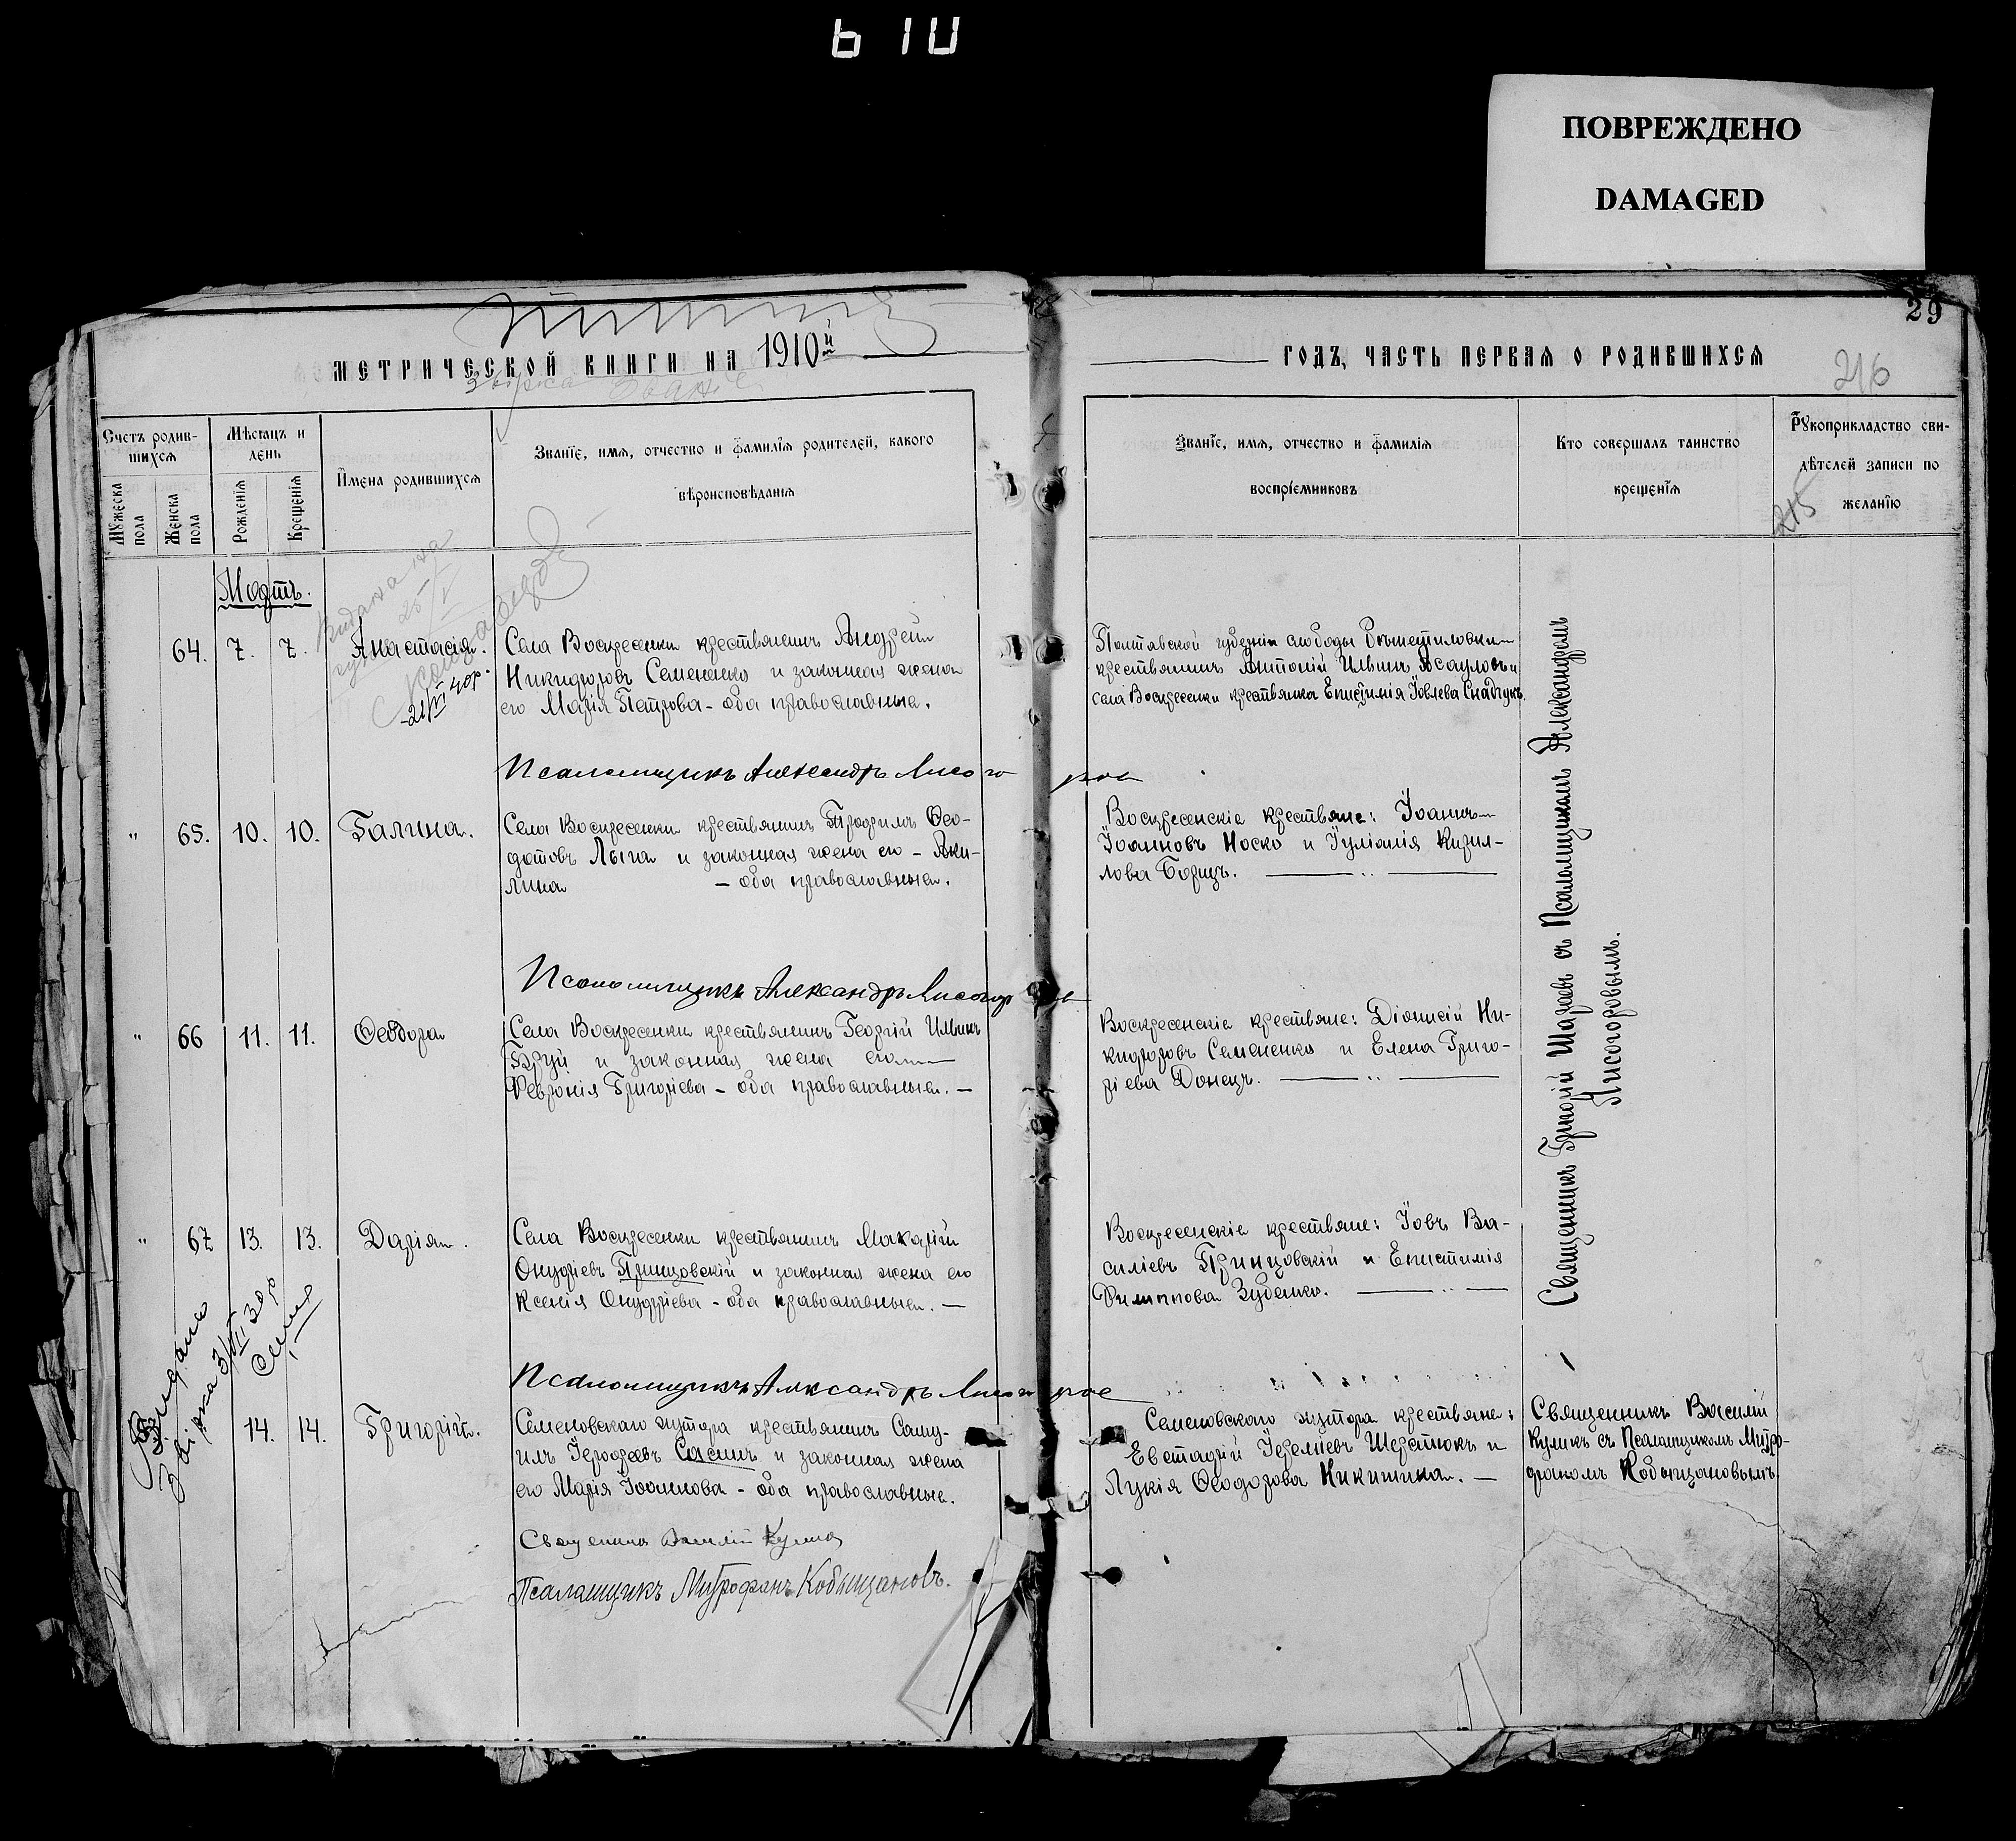 6 10
ПОВРЕЖДЕНО
DAMAGED
29
МЕТРИЧЕСКОЙ КНИГИ НА 1910й
ГОДЪ, ЧАСТЬ ПЕРВАЯ О РОДИВШИХСЯ
216
Счетъ родив-
шихся
Мужеска
пола
Женска
пола
Мѣсяцъ и
день
Рожденія
Крещенія
Имена родившихся
Званіе, имя, отчество и фамилія родителей, какого
вѣроисповѣданія
Званіе, имя, отчество и фамилія
воспріемниковъ
Кто совершалъ таинство
крещенія
Рукоприкладство сви-
дѣтелей записи по
желанію
215
Мартъ.
64. 7. 7. Анастасія.
Села Воскресенки крестьянинъ Андрей
Никифоровъ Семененко и законная жена
его Марія Петрова - оба православные.
Полтавской губерніи слободы
крестьянинъ Антоній Ильинъ Ясауловъ и
села Воскресенки крестьянка Епистимія Іовлева
Псаломщикъ Александръ Лисогоров
" 65. 10. 10. Галина.
Села Воскресенки крестьянинъ Трофимъ Ѳео-
дотовъ Лыга и законная жена его - Аки-
лина - оба православные.
Воскресенскіе крестьяне: Іоаннъ
Іоанновъ Носко и Іуліанія Кирил-
лова Борщъ. — „ —
Псаломщикъ Александръ Лисогоров
" 66 11. 11. Ѳеодора
Села Воскресенки крестьянинъ Георгій Ильинъ
Бруй и законная жена его
Февронія Григоріева - оба православные. —
Воскресенскіе крестьяне: Діонисій Ни-
кифоровъ Семененко и Елена Григо-
ріева Донецъ. — „ —
" 67 13. 13. Дарія.
Села Воскресенки крестьянинъ Макарій
Онуфріевъ Принцовскій и законная жена его
Ксенія Онуфріева - оба православные. —
Воскресенскіе крестьяне: Іовъ Ва-
силіевъ Принцовскій и Епистимія
Филиппова Зубенко. — „ —
Священникъ Григорій съ Псаломщикомъ Александромъ
Лисогоровымъ.
Псаломщикъ Александръ Лисогоров
14. 14. Григорій.
Семеновскаго хутора крестьянинъ Саму-
илъ Іерофеевъ и законная жена
его Марія Іоаннова - оба православные.
Семеновскаго хутора крестьяне:
Евстафій Іереміевъ Шерстюкъ и
Лукія Ѳеодорова Никитина. —
Священникъ Василій
Куликъ съ Псаломщикомъ Митро-
фаномъ Кобыщановымъ.
Священникъ Василій Куликъ
Псаломщикъ Митрофанъ Кобыщановъ.